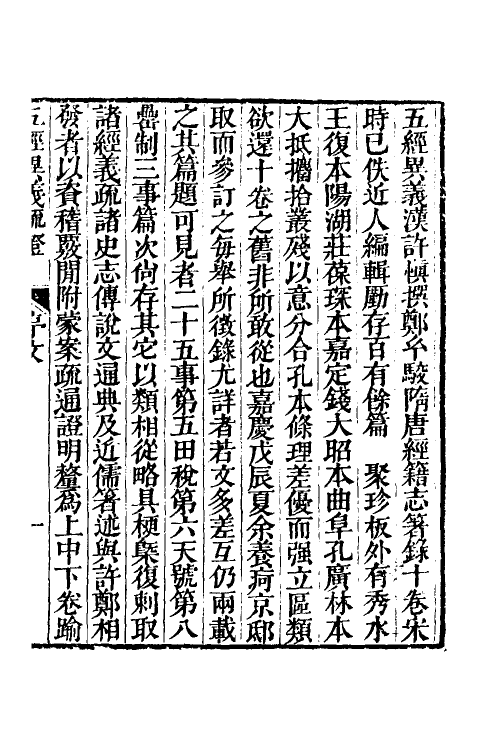 五經異義漢許慎撰鄭幺駮隋唐經籍志箸錄十卷宋
時已佚近人編輯勵存百有餘篇　聚珍板外有秀水
王復本陽湖莊葆琛本嘉定錢大昭本曲阜孔廣林本
大抵攟拾叢殘以意分合孔本條理差優而强立區類
欲還十卷之舊非所敢從也嘉慶戊辰夏余養疴京邸
取而參訂之每舉所徵錄尤詳者若文多差互仍兩載
之其篇題可見者二十五事第五田稅第六天號第八
罍制三事篇次尙存其它以類相從略具梗槩復刺取
諸經義疏諸史志傳說文通典及近儒箸述與許鄭相
發者以資稽覈閒附蒙案疏通證明釐爲上中下卷踰
五經異義疏證　序文　一